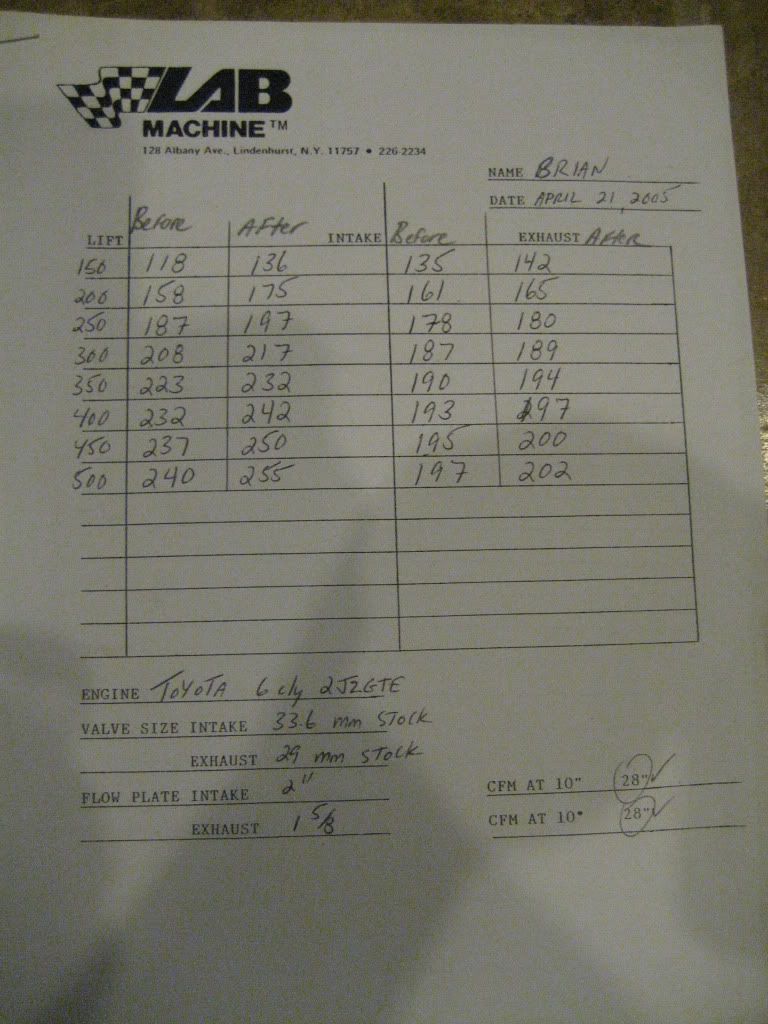 LAB
MACHINE™
128 Albany Ave., Lindenhurst, N.Y. 11757 • 226-2234
NAME BRIAN
DATE APRIL 21, 2005
LIFT Before After INTAKE Before EXHAUST After
150 118 136 135 142
200 158 175 161 165
250 187 197 178 180
300 208 217 187 189
350 223 232 190 194
400 232 242 193 197
450 237 250 195 200
500 240 255 197 202
ENGINE TOYOTA 6 cly 2JZGTE
VALVE SIZE INTAKE 33.6 mm STOCK
EXHAUST 29 mm STOCK
FLOW PLATE INTAKE 2"
EXHAUST 1 5/8
CFM AT 10" 28" ✓
CFM AT 10" 28" ✓